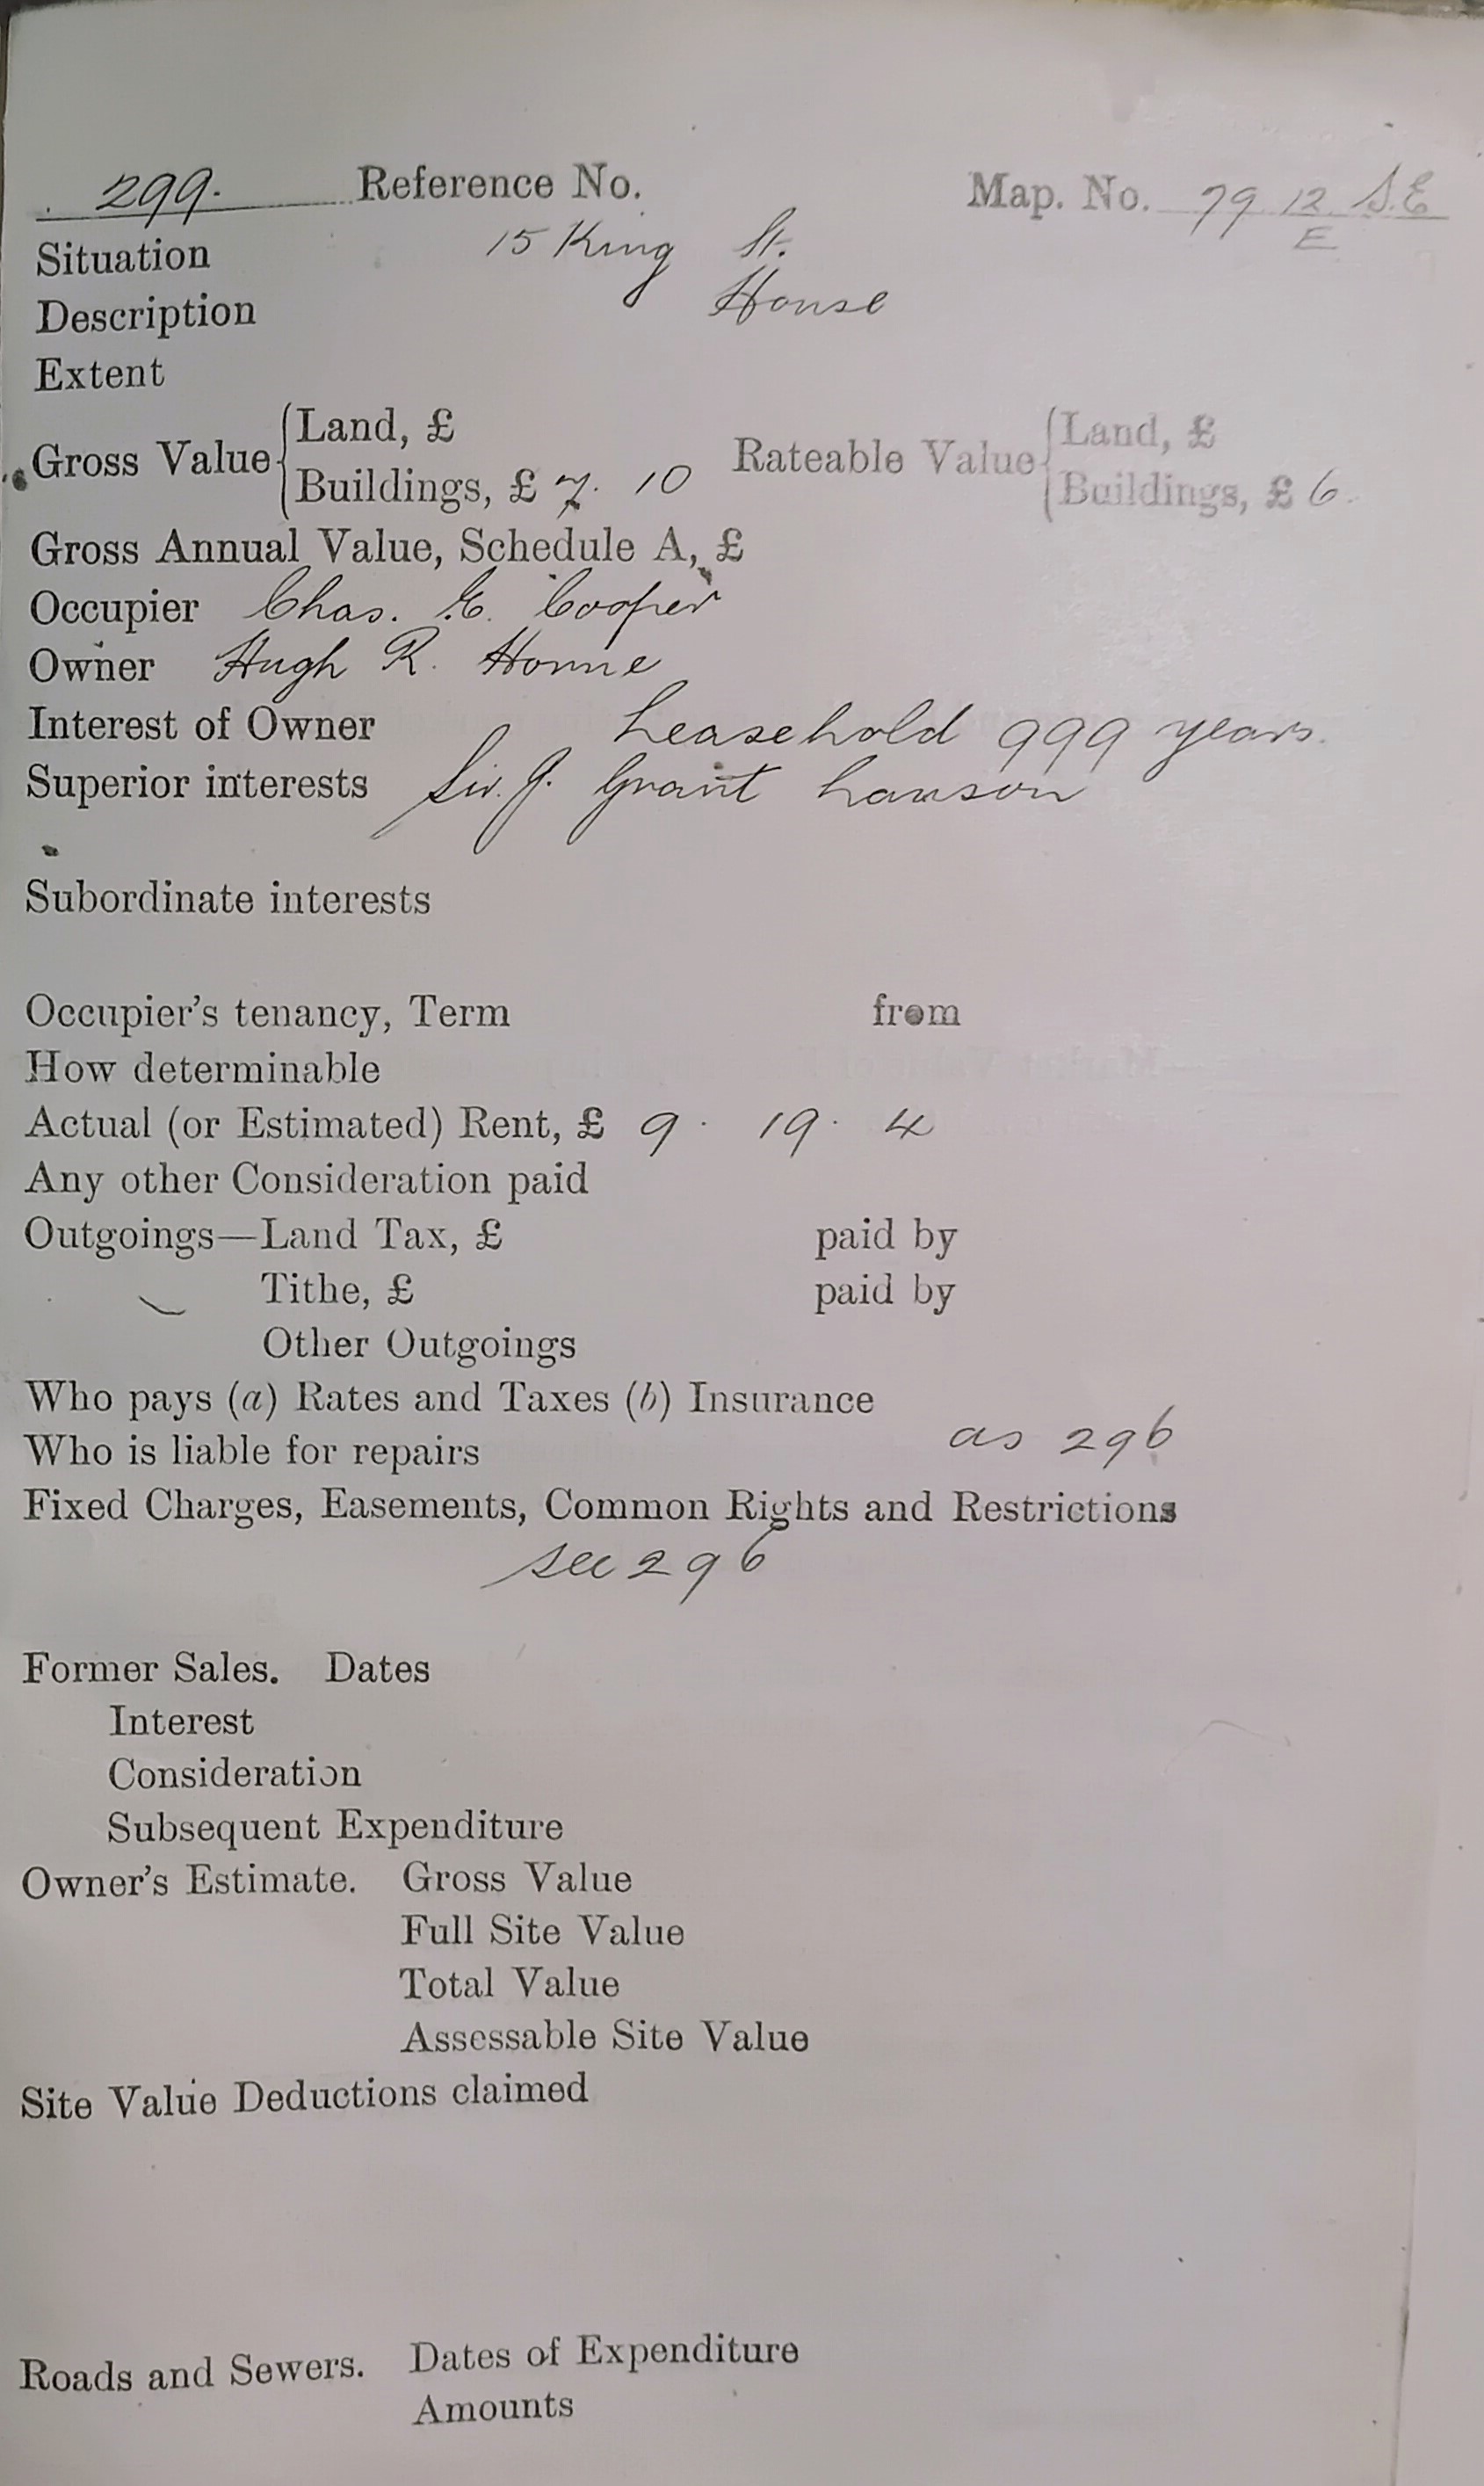 299. Reference No. Map. No. 79 12 S.E
E
Situation 15 King St.
Description House
Extent
Gross Value Land, £
Buildings, £ 7. 10 Rateable Value Land, £
Buildings, £ 6.
Gross Annual Value, Schedule A, £
Occupier Chas. E. Cooper
Owner Hugh R. Horne
Interest of Owner Leasehold 999 years.
Superior interests Sir. J. Grant Lawson
Subordinate interests
Occupier's tenancy, Term from
How determinable
Actual (or Estimated) Rent, £ 9 · 19 · 4
Any other Consideration paid
Outgoings—Land Tax, £ paid by
Tithe, £ paid by
Other Outgoings
Who pays (a) Rates and Taxes (b) Insurance
Who is liable for repairs as 296
Fixed Charges, Easements, Common Rights and Restrictions
see 296
Former Sales. Dates
Interest
Consideration
Subsequent Expenditure
Owner's Estimate. Gross Value
Full Site Value
Total Value
Assessable Site Value
Site Value Deductions claimed
Roads and Sewers. Dates of Expenditure
Amounts